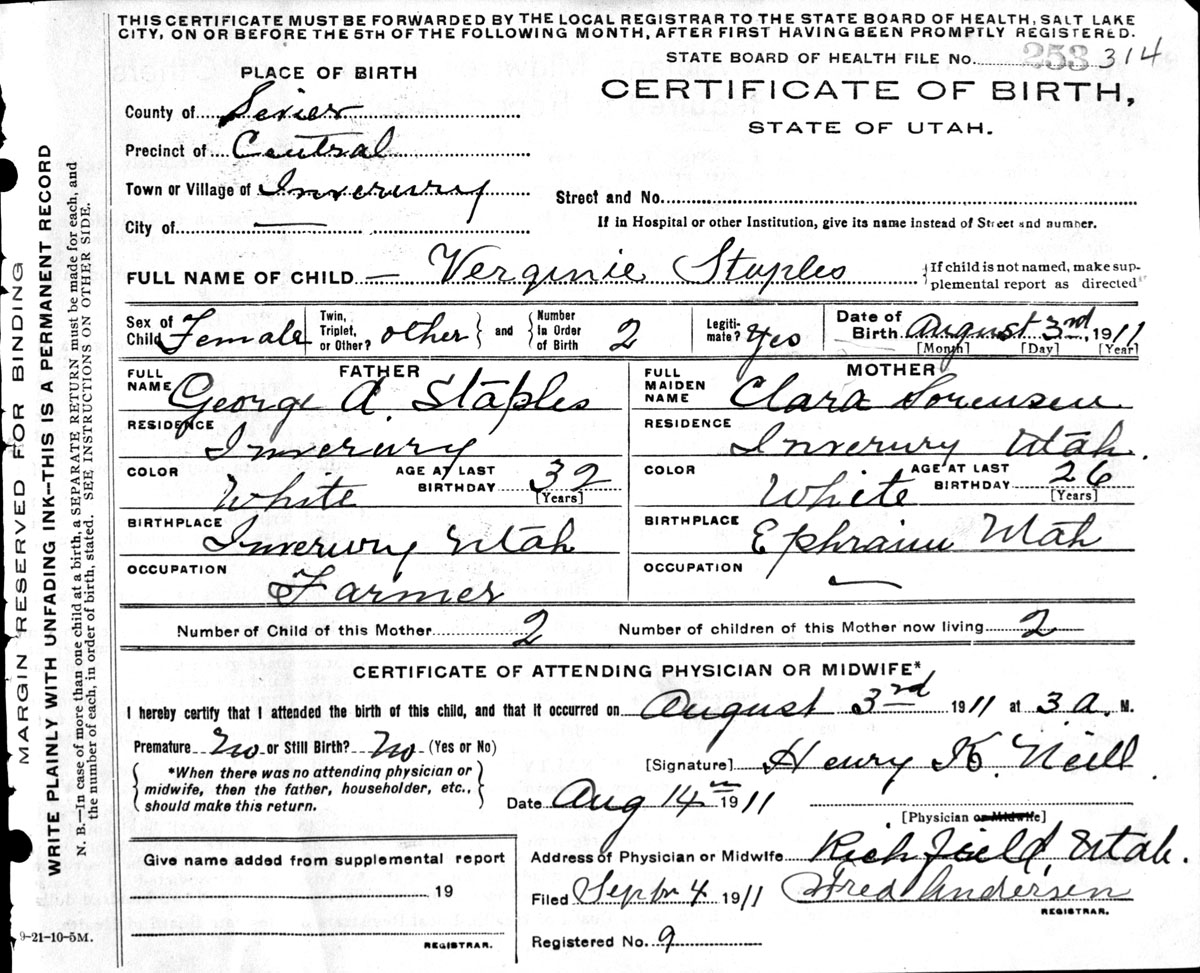 THIS CERTIFICATE MUST BE FORWARDED BY THE LOCAL REGISTRAR TO THE STATE BOARD OF HEALTH, SALT LAKE
CITY, ON OR BEFORE THE 5TH OF THE FOLLOWING MONTH, AFTER FIRST HAVING BEEN PROMPTLY REGISTERED.
STATE BOARD OF HEALTH FILE No. 253 314
PLACE OF BIRTH
CERTIFICATE OF BIRTH,
STATE OF UTAH.
County of Sevier
Precinct of Central
Town or Village of Inverury
Street and No.
City of —
If in Hospital or other Institution, give its name instead of Street and number.
FULL NAME OF CHILD — Verginie Staples {If child is not named, make sup-
plemental report as directed
Sex of Child Female Twin, Triplet, or Other? other } and { Number In Order of Birth 2 Legiti-mate? Yes Date of Birth August 3rd, 1911
[Month] [Day] [Year]
FATHER
FULL NAME George A. Staples
RESIDENCE Inverury
COLOR White AGE AT LAST BIRTHDAY 32 [Years]
BIRTHPLACE Inverury Utah
OCCUPATION Farmer
MOTHER
FULL MAIDEN NAME Clara Sorensen
RESIDENCE Inverury Utah.
COLOR White AGE AT LAST BIRTHDAY 26 [Years]
BIRTHPLACE Ephraim Utah
OCCUPATION —
Number of Child of this Mother 2 Number of children of this Mother now living 2
CERTIFICATE OF ATTENDING PHYSICIAN OR MIDWIFE*
I hereby certify that I attended the birth of this child, and that it occurred on August 3rd 1911 at 3 a. M.
Premature No or Still Birth? No (Yes or No)
{ *When there was no attending physician or
midwife, then the father, householder, etc.,
should make this return. }
[Signature] Henry K. Neill.
Date Aug 14th 1911
[Physician or Midwife]
Give name added from supplemental report
19
REGISTRAR.
Address of Physician or Midwife Richfield, Utah.
Filed Septbr 4 1911 Fred Andersen
REGISTRAR.
Registered No. 9
9-21-10-5M.
MARGIN RESERVED FOR BINDING
WRITE PLAINLY WITH UNFADING INK—THIS IS A PERMANENT RECORD
N. B.—In case of more than one child at a birth, a SEPARATE RETURN must be made for each, and
the number of each, in order of birth, stated. SEE INSTRUCTIONS ON OTHER SIDE.